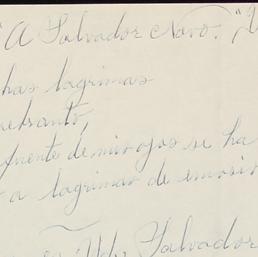 "A Salvador Novo."
has lagrimas
fuente de mis ojos se ha
a lagrimas de
Salvador